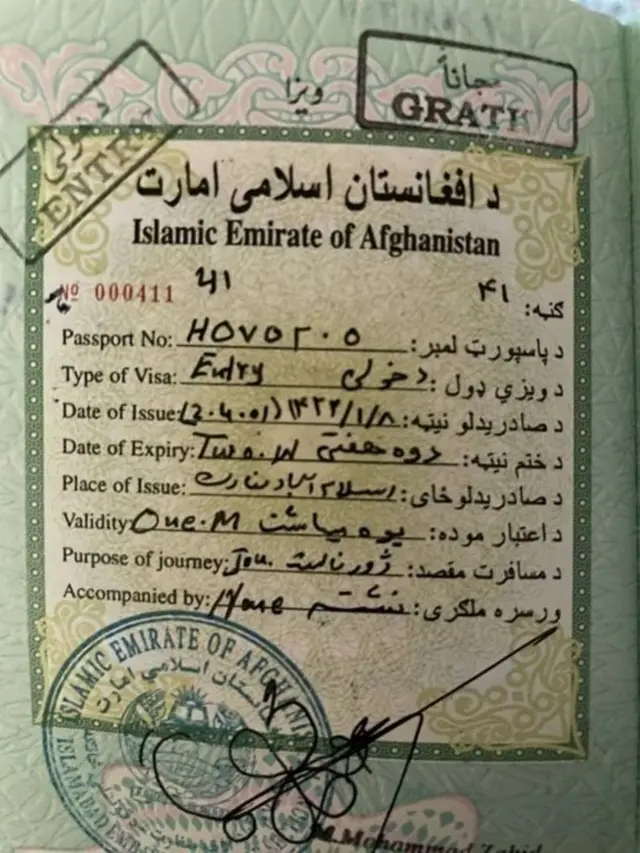 مجاناً
GRATI
ویزا
دخولی
ENTRY
د افغانستان اسلامی امارت
Islamic Emirate of Afghanistan
Nº 000411 41 ۴۱ :ګڼه
Passport No: HOVOГ۰O د پاسپورټ لمبر:
Type of Visa: Entry دخولی د ویزې ډول:
Date of Issue: (2.4.01) ۱۴۲۲/۱/۸ د صادریدلو نیټه:
Date of Expiry: Two.W دوه هفتې د ختم نیټه:
Place of Issue: اسلام آباد سفارت د صادریدلو ځای:
Validity One.M یوه میاشت د اعتبار موده:
Purpose of journey: Jou. ژورنالست د مسافرت مقصد:
Accompanied by: None نشته ورسره ملګری:
ISLAMIC EMIRATE OF AFGHANI
ISLAMABAD
M.Mohammad Zahid